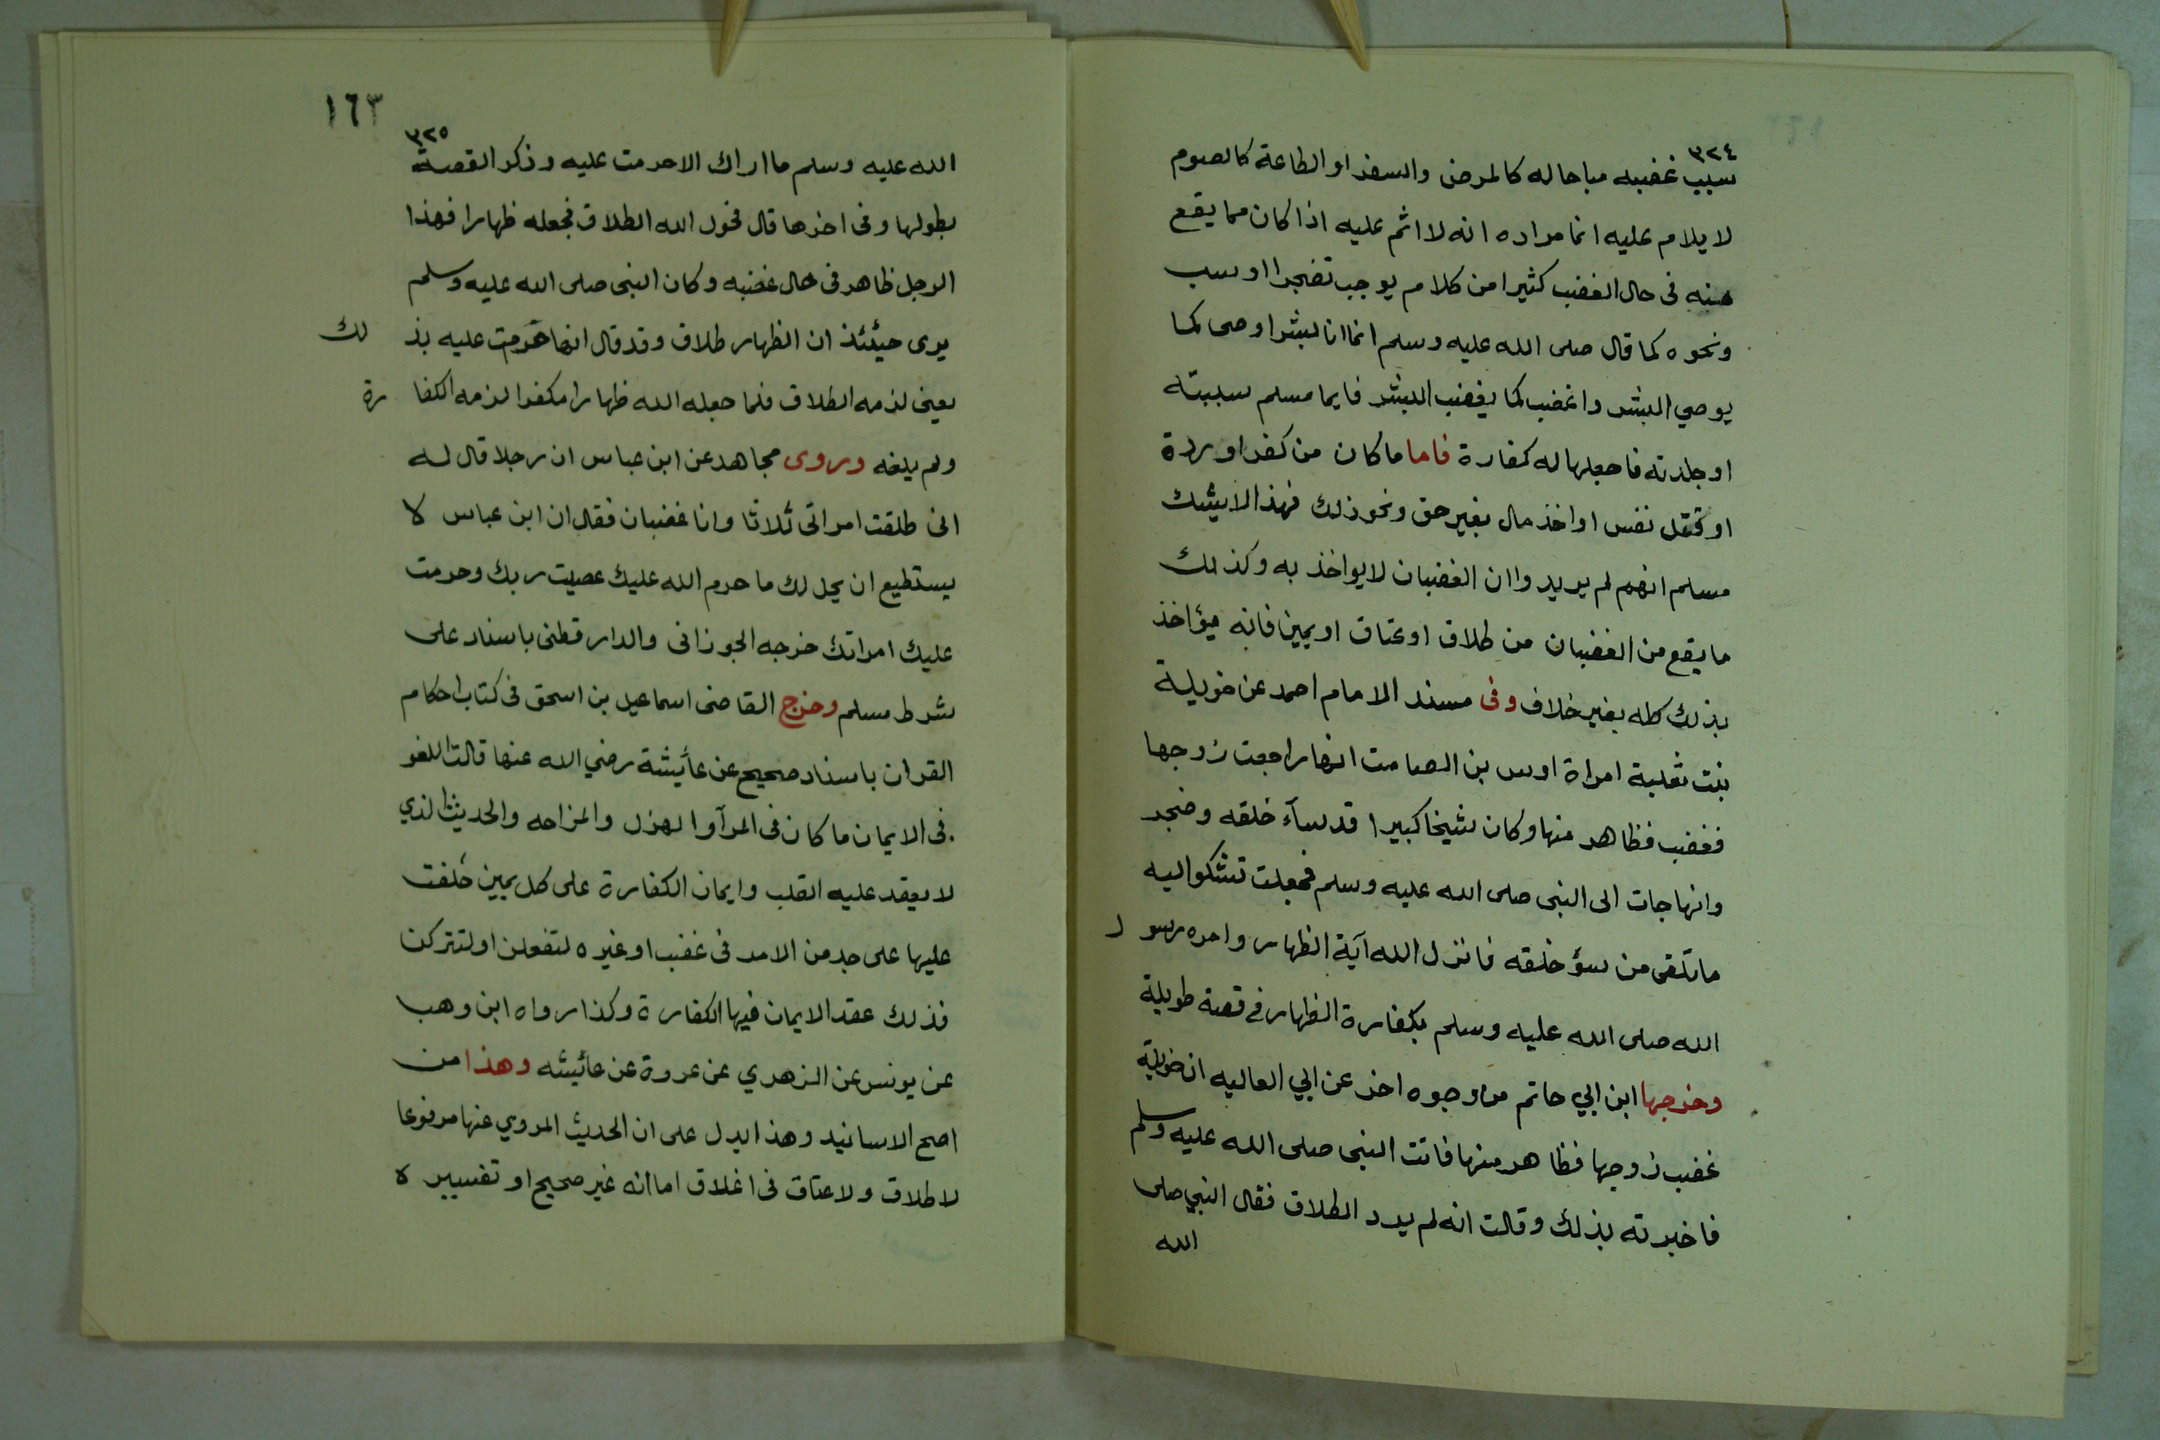 ٣٢٤
سبب غضبه مباحاله كالمرض والسفر او الطاعة كالصوم
لا يلام عليه انما مراده انه لا اثم عليه اذا كان مما يقع
منه فى حال الغضب كثيرا من كلام يوجب تضجرا او سب
ونحوه كما قال صلى الله عليه وسلم انما انا بشر اوصى كما
يوصي البشر واغضب كما يغضب البشر فايما مسلم سببته
او جلدته فاجعلها له كفارة فاما ما كان من كفر او ردة
او قتل نفس او اخذ مال بغير حق ونحو ذلك فهذا لا يشك
مسلم انهم لم يريدوا ان الغضبان لا يواخذ به وكذلك
ما يقع من الغضبان من طلاق او عتاق او يمين فانه يؤاخذ
بذلك كله بغير خلاف وفى مسند الامام احمد عن خويلة
بنت ثعلبة امراة اوس بن الصامت انها راجعت زوجها
فغضب فظاهر منها وكان شيخا كبيرا قد ساء خلقه وضجر
وانها جات الى النبى صلى الله عليه وسلم فجعلت تشكوا اليه
ما تلقى من سؤ خلقه فانزل الله آية الظهار وامره رسو ل
الله صلى الله عليه وسلم بكفارة الظهار فى قصة طويلة
وخرجها ابن ابي حاتم من وجوه اخر عن ابي العاليه ان خويلة
غضب زوجها فظاهر منها فاتت النبى صلى الله عليه وسلم
فاخبرته بذلك وقالت انه لم يرد الطلاق فقال النبي صلى
الله
١٦٣
٣٢٥
الله عليه وسلم ما اراك الا حرمت عليه وذكر القصة
بطولها وفى اخرها قال فحول الله الطلاق فجعله ظهارا فهذا
الرجل ظاهر فى حال غضبه وكان النبى صلى الله عليه وسلم
يرى حيئئذ ان الظهار طلاق وقد قال انها حرمت عليه بذ لك
يعنى لزمه الطلاق فلما جعله الله ظهارا مكفرا لزمه الكفا رة
ولم يلغه وروى مجاهد عن ابن عباس ان رجلا قال له
انى طلقت امراتى ثلاثا وانا غضبان فقال ان ابن عباس لا
يستطيع ان يحل لك ما حرم الله عليك عصيت ربك وحرمت
عليك امراتك خرجه الجوزانى والدارقطنى باسناد على
شرط مسلم وخرج القاضى اسماعيل بن اسحق فى كتاب احكام
القران باسناد صحيح عن عايشة رضي الله عنها قالت اللغو
فى الايمان ما كان فى المرآ والهزل والمزاحه والحديث الذي
لا يعقد عليه القلب وايمان الكفارة على كل يمين حلفت
عليها على جد من الامر فى غضب او غيره لتفعلن او لتتركن
فذلك عقد الايمان فيها الكفارة وكذا رواه ابن وهب
عن يونس عن الزهري عن عروة عن عائيشه وهذا من
اصح الاسانيد وهذا يدل على ان الحديث المروي عنها مرفوعا
لا طلاق ولا عتاق فى اغلاق اما انه غير صحيح او تفسيره